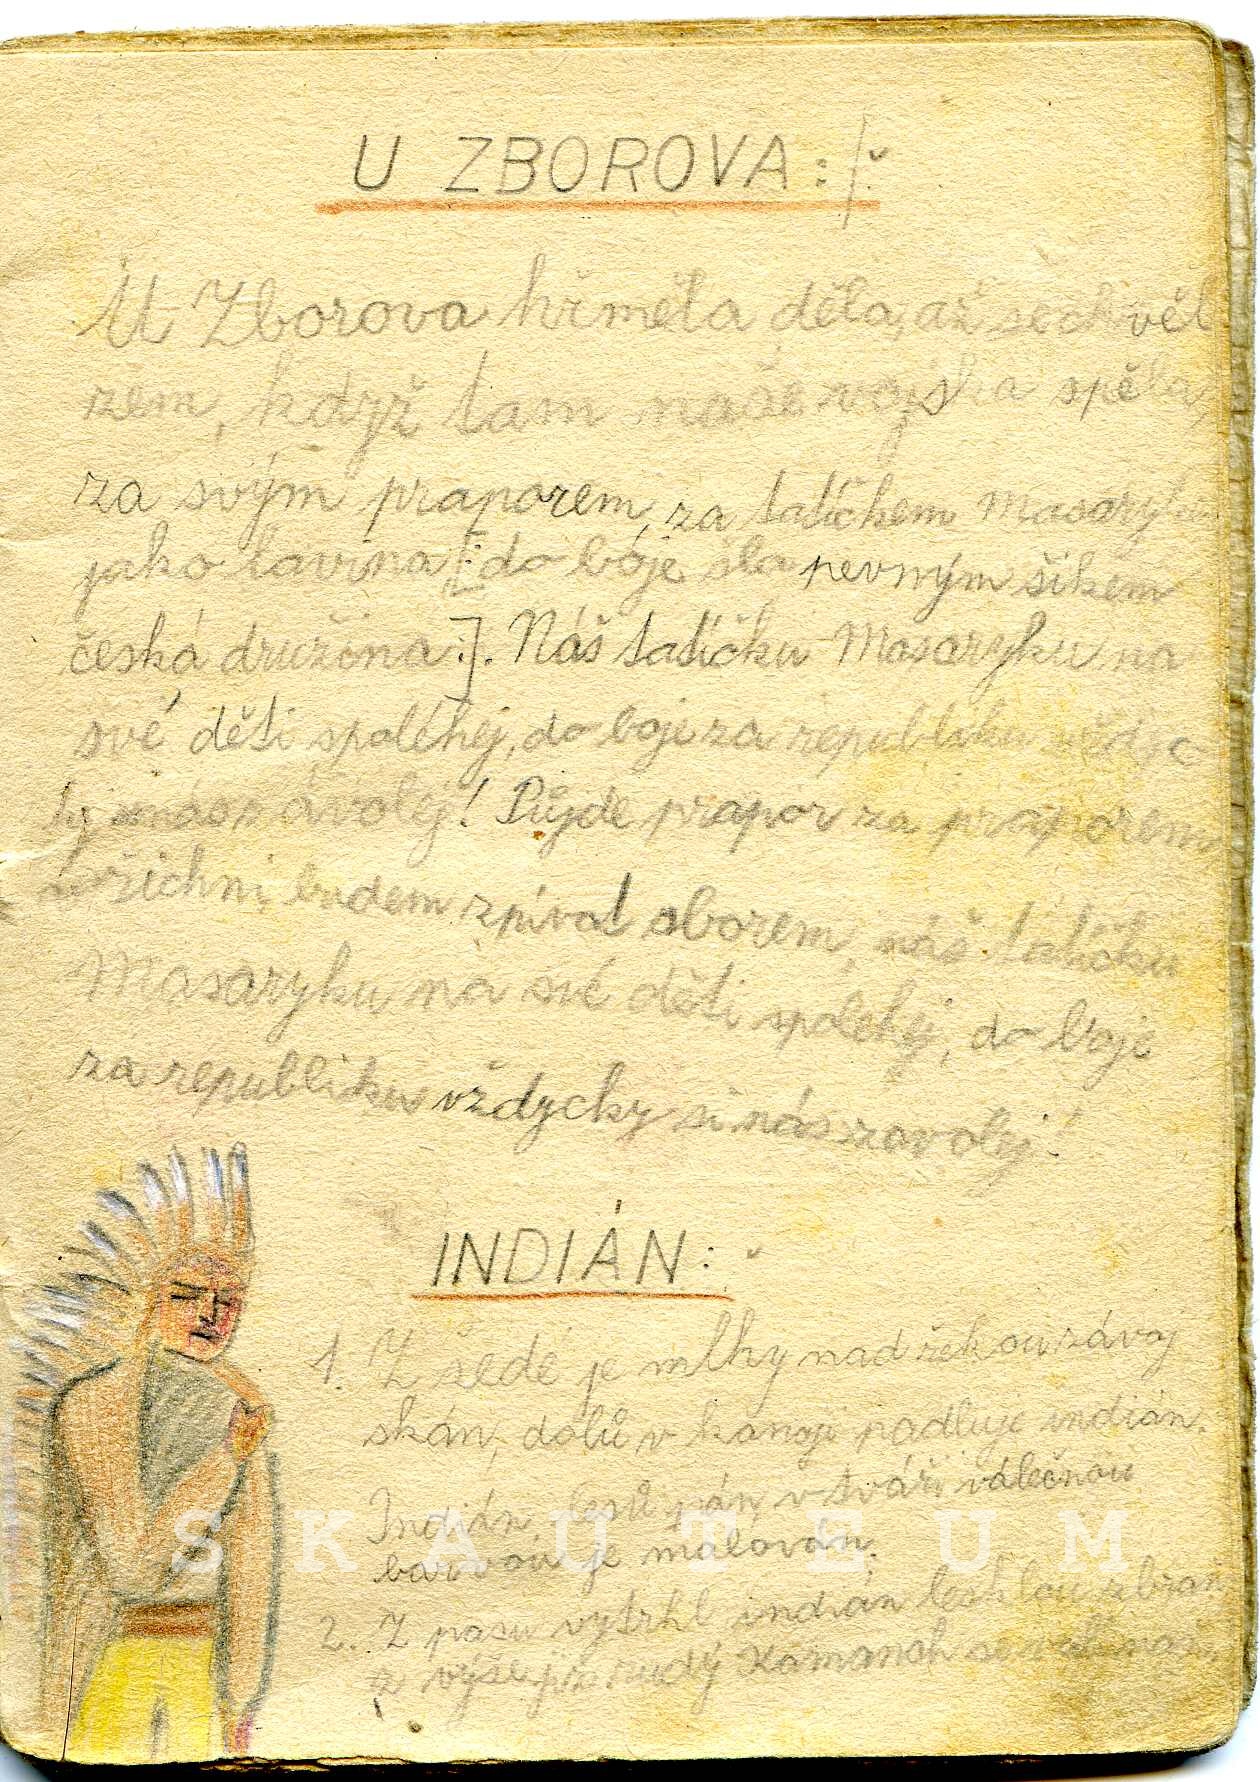 U ZBOROVA:
U Zborova hřměla děla, až se chvěl
zem, když tam naše vojska spěla,
za svým praporem, za tatíčkem Masarykem
jako lavina [: do boje šla pevným šikem
česká družina :]. Náš tatíčku Masaryku na
své děti spoléhej, do boje za republiku
nás zavolej! Půjde prapor za praporem
všichni budem zpívat sborem, náš tatíčku
Masaryku na své děti spoléhej, do boje
za republiku vždycky si nás zavolej!
INDIÁN:
1. Z šedé je mlhy nad řekou závoj
skán, dolů v kanoji padluje indián.
Indián, lesů pán, v tváři válečnou
barvou je málován.
2. Z pasu vytrhl indián lesklou zbraň
z výše rudý Kamanch se
SKAUTEUM